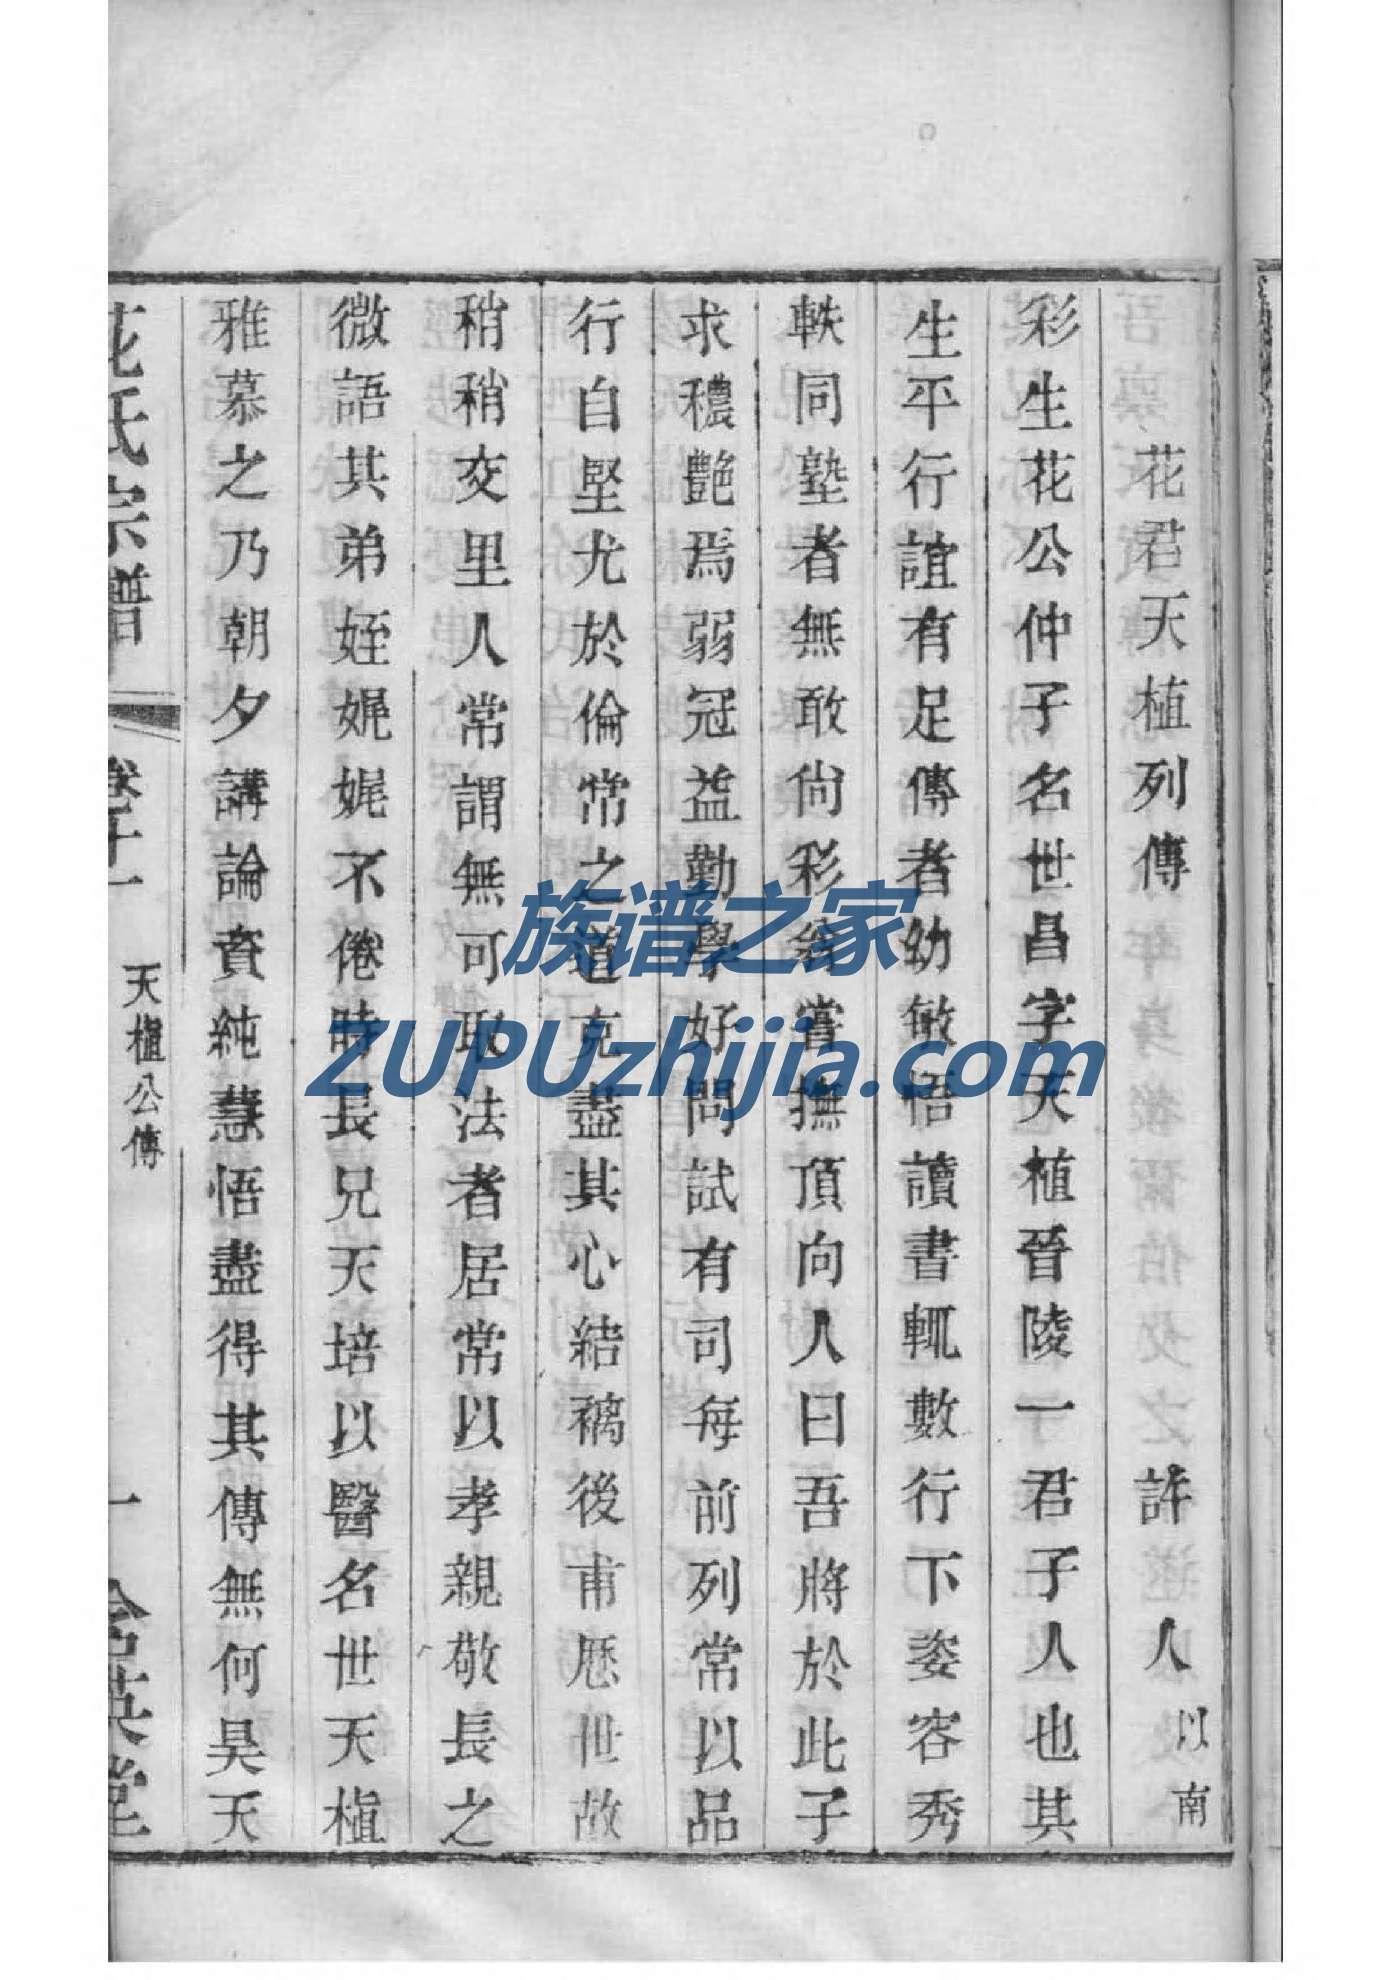 花君天植列傳　許人以南
彩生花公仲子名世昌字天植晉陵一君子人也其
生平行誼有足傳者幼敏悟讀書輒數行下姿容秀
軼同塾者無敢尙彩翁嘗撫頂向人曰吾將於此子
求穠艶焉弱冠益勤學好問試有司每前列常以品
行自堅尤於倫常之道克盡其心結褵後甫厯世故
稍稍交里人常謂無可取法者居常以孝親敬長之
微語其弟姪娓娓不倦時長兄天培以醫名世天植
雅慕之乃朝夕講論資純慧悟盡得其傳無何昊天
花氏宗譜　卷十一　天植公傳　一　含英堂
族谱之家
ZUPUzhijia.com